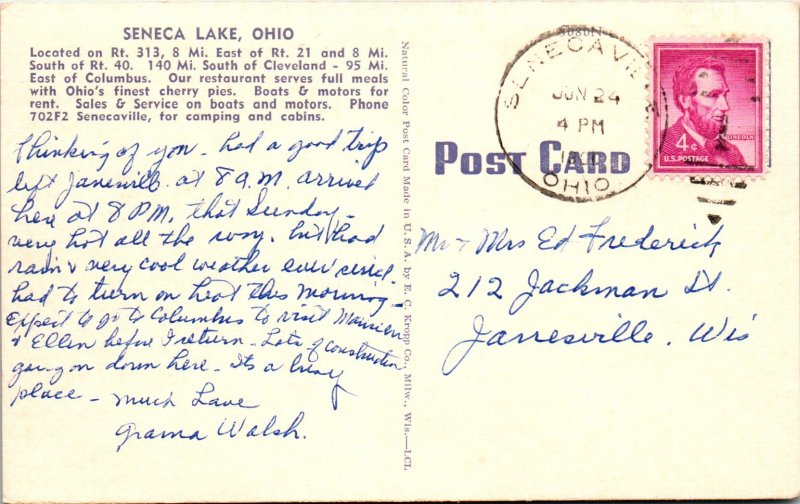 SENECA LAKE, OHIO
Located on Rt. 313, 8 Mi. East of Rt. 21 and 8 Mi.
South of Rt. 40. 140 Mi. South of Cleveland - 95 Mi.
East of Columbus. Our restaurant serves full meals
with Ohio's finest cherry pies. Boats & motors for
rent. Sales & Service on boats and motors. Phone
702F2 Senecaville, for camping and cabins.
Thinking of you - had a good trip
left Janesville at 8 A.M. arrived
here at 8 PM. that Sunday -
very hot all the way. but had
rain & very cool weather ever since.
had to turn on heat this morning -
Expect to go to Columbus to visit
& Ellen before I return - Lots of construction
going on down here - Its a busy
place - much Love
Grama Walsh.
Natural Color Post Card Made in U. S. A. by E. C. Kropp Co., Milw., Wis.—LCL
POST CARD
SENECAVILLE
JUN 24
4 PM
OHIO
LINCOLN
4¢
U.S. POSTAGE
Mr & Mrs Ed Frederick
212 Jackman St.
Janesville, Wis